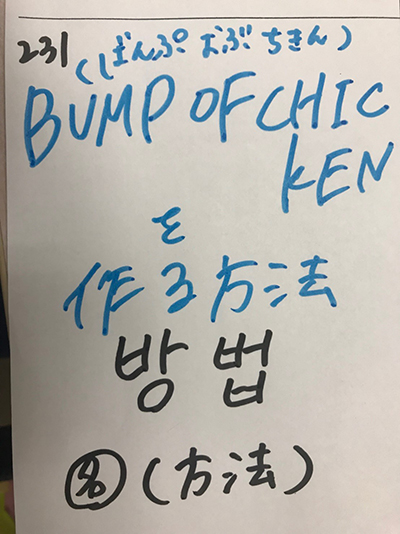 231
(ばんぷ おぶ ちきん)
BUMP OF CHIC
KEN
を
作る方法
방법
名(方法)